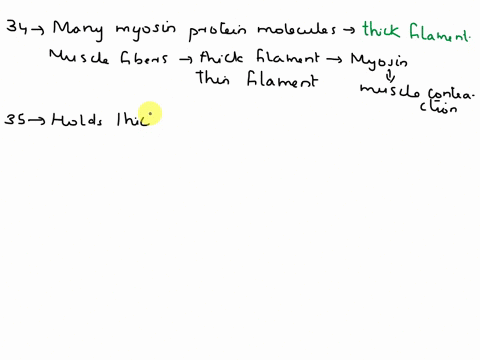 34 → Many myosin protein molecules → thick filament.
Muscle fibers → thick filament → Myosin
thin filament
muscle contra-
ction
35 → Holds thic